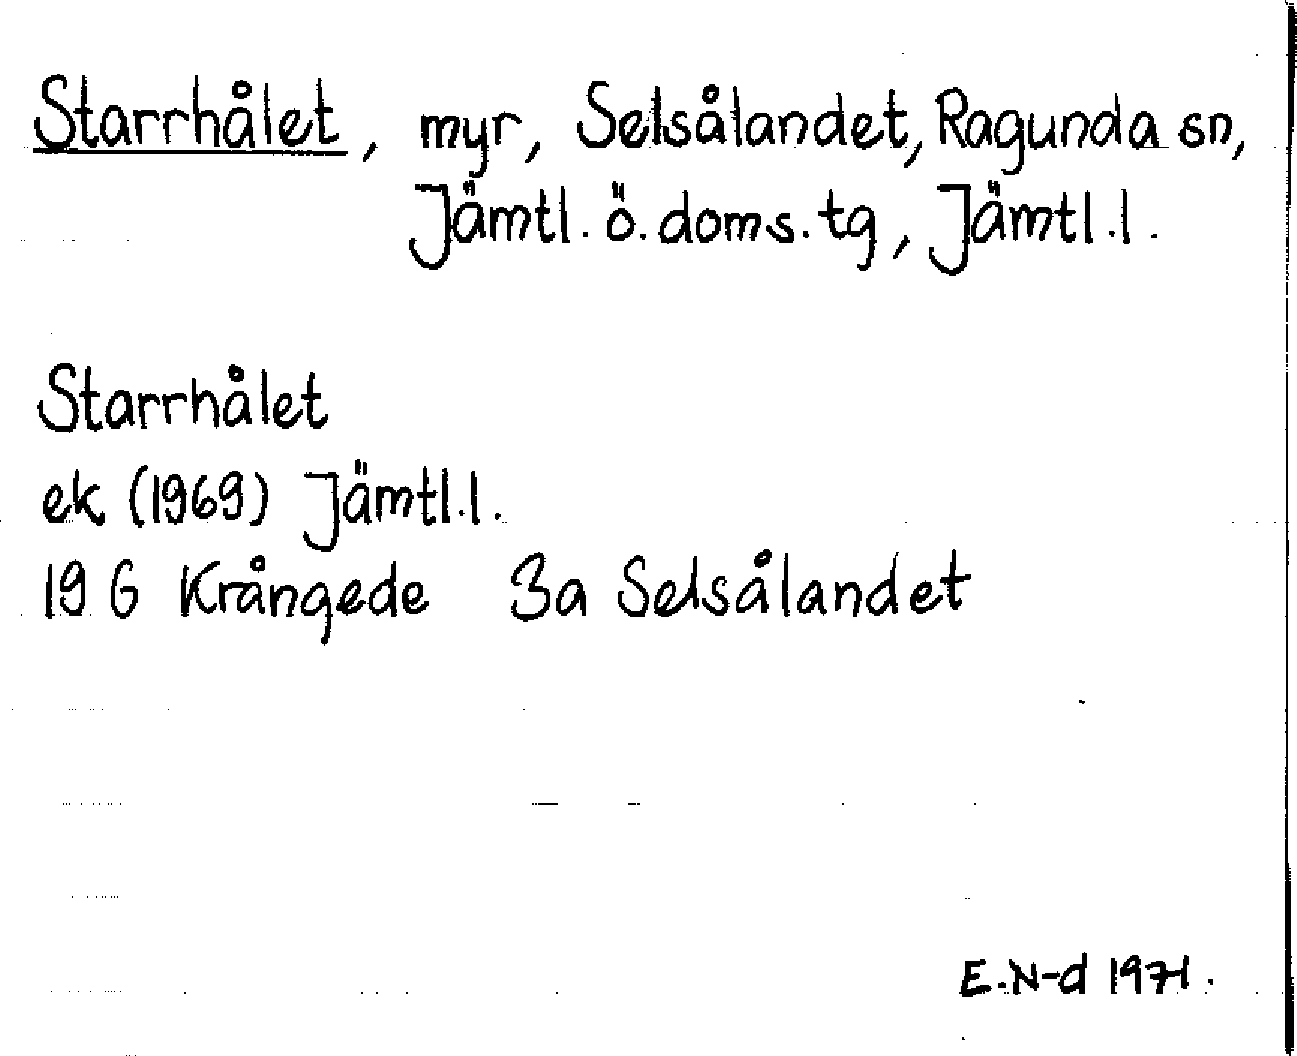 Starrhålet, myr, Selsålandet, Ragunda sn,
Jämtl. ö. doms. tg, Jämtl. l.
Starrhålet
ek (1969) Jämtl. l.
19 G Krångede 3a Selsålandet
E. N-d 1971.